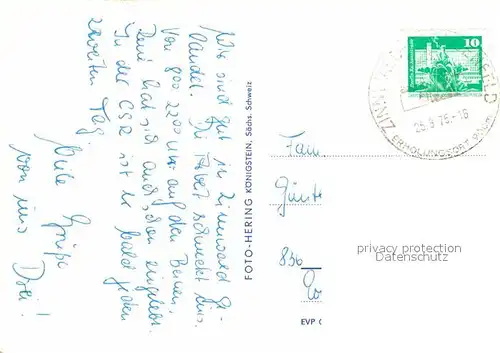 Wir sind gut in Zinnwald ge-
landet. Die Arbeit schmeckt uns.
Von 800-2200 Uhr auf den Beinen.
Deni hat sich auch schon eingelebt.
In der CSR ist er bald jeden
zweiten Tag.
Viele Grüße
von uns
Drei!
FOTO-HERING KÖNIGSTEIN, Sächs. Schweiz
10
25.9.75-16
ERHOLUNGSORT
Fam.
Günte
836
EVP
privacy protection
Datenschutz